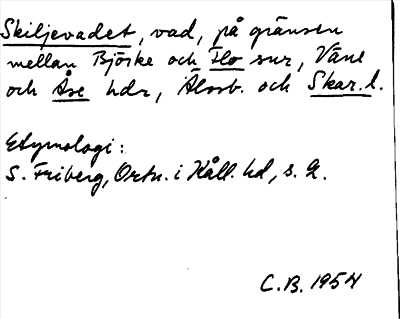 Skiljevadet, vad, på gränsen
mellan Björke och Flo snr, Väne
och Åse hdr, Älvsb. och Skar. l.
Etymologi:
S. Friberg, Ortn. i Kåll. hd, s. 2.
C.B. 1954